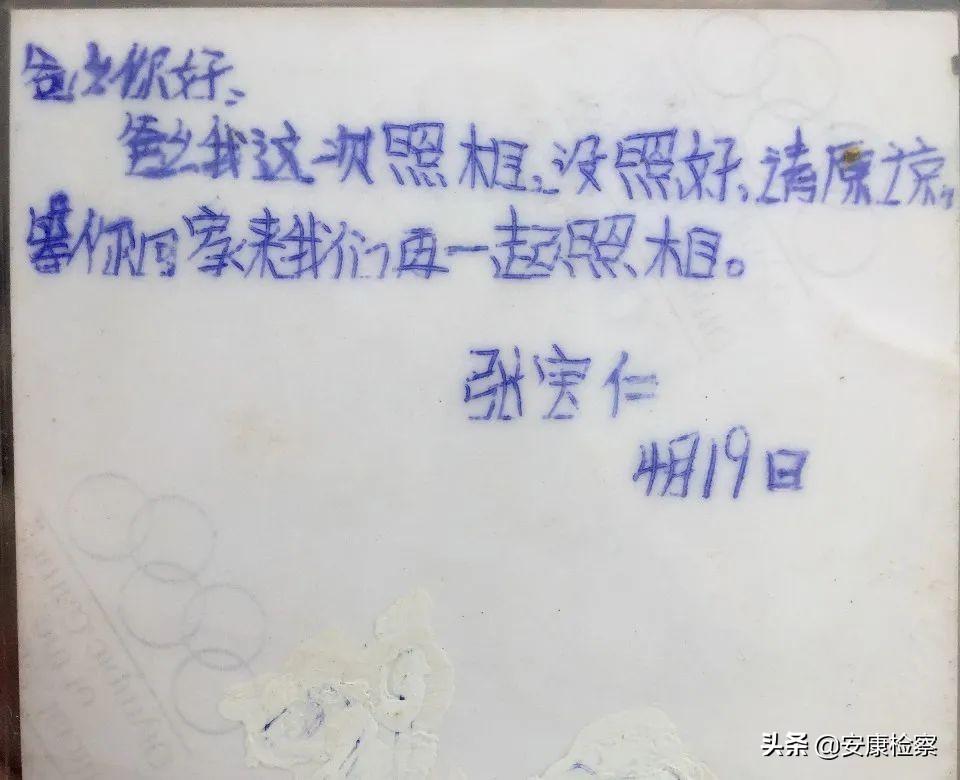 你好、
我这次照相、没照好、请原谅。
等你回家来我们再一起照相。
张宝仁
4月19日
头条 @安康检察